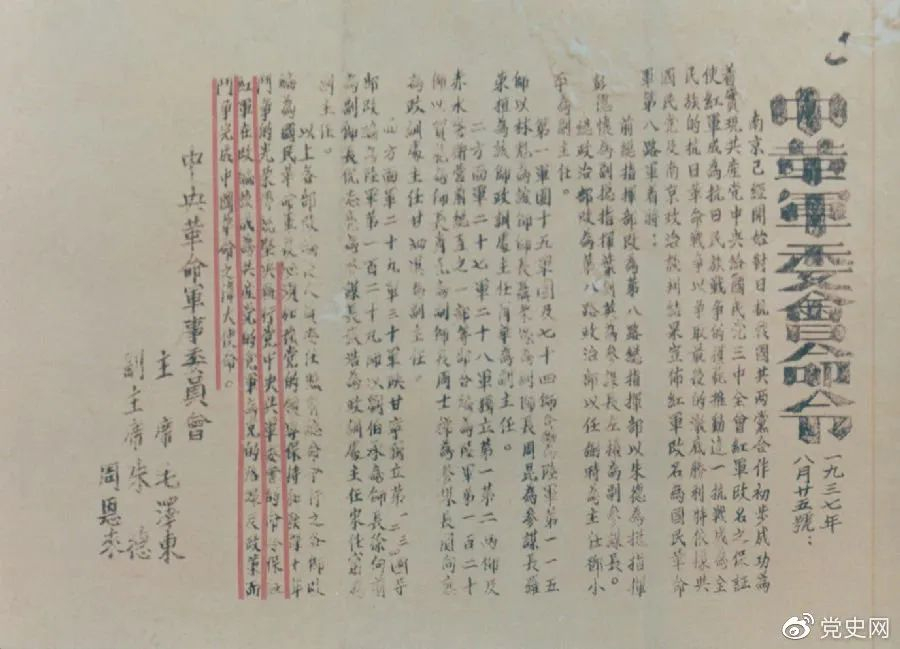 中華軍委會命令
一九三七年
八月廿五號：
南京已經開始對日抗戰國共兩黨合作初步成功為
着實現共產黨中央給國民党三中全會紅軍改名之保証
使紅軍成為抗日民族战争的模範推動這一抗戰成為全
民族的抗日革命戰争以争取最後的澈底勝利特依據共
國民党及南京政治談判結果宣佈紅軍改名為國民革命
軍第八路軍着將：
前總指揮部改為第八路總指揮部以朱德為總指揮
彭德懷為副總指揮葉劍英為參謀長左權為副參謀長。
總政治部改為第八路政治部以任弼時為主任鄧小
平為副主任。
第一軍團十五軍團及七十四師合編為陸軍第一一五
師以林彪為該師師長聶榮臻為副師長周昆為參謀長羅
榮桓為該師政訓處主任蕭華為副主任。
二方面軍二十七軍二十八軍獨立第一第二兩師及
赤水警衛營前總直之一部等部合編為陸軍第一百二十
師以賀龍為師長蕭克為副師長周士 為參謀長關向應
為政訓處主任甘泗淇為副主任。
四方面軍二十九軍三十軍陝甘寧獨立第一二三四等
部改編為陸軍第一百二十九師以劉伯承為師長徐向前
為副師長倪志亮為參謀長張浩為政訓處主任宋任窮為
副主任。
以上各部改編 人員委任照前 命令行之各部改
編為國民革命軍後必須加強党的領導保持和發揮十年
鬥爭的光榮傳統堅決執行党中央與軍委會的命令保證
紅軍在改編後成為共產党的党軍為党的路線及政策而
鬥爭完成中國革命之偉大使命。
中央革命軍事委員會
主席毛澤東
副主席朱德
周恩來
党史网